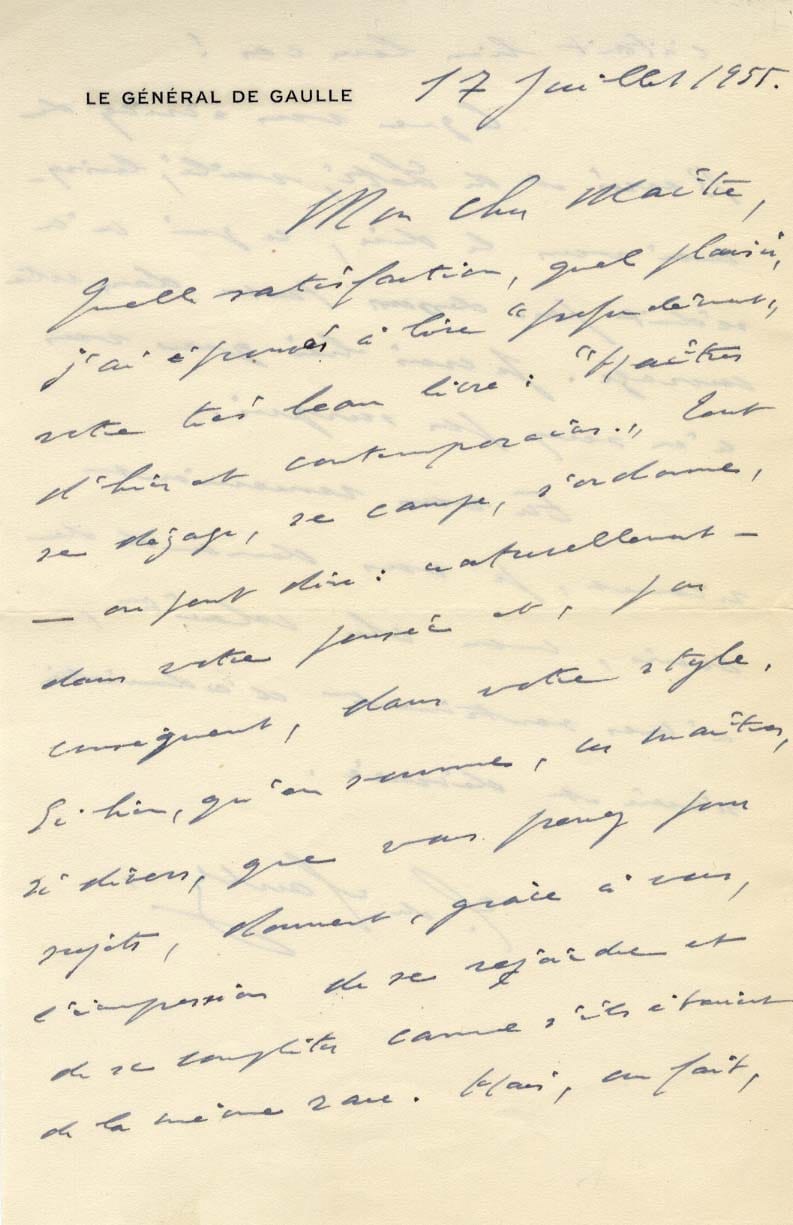 LE GÉNÉRAL DE GAULLE
17 Juillet 1955.
Mon cher Maître,
Quelle satisfaction, quel plaisir,
j'ai éprouvés à lire "profondément"
votre très beau livre : "Maîtres
d'hier et contemporains." Tout
se dégage, se campe, s'ordonne,
— on peut dire : naturellement —
dans votre pensée et, par
conséquent, dans votre style.
Si bien, qu'en somme, ces maîtres,
si divers, que vous prenez pour
sujets, donnent, grâce à vous,
l'impression de se rejoindre et
de se compléter comme s'ils étaient
de la même race. Mais, en fait,